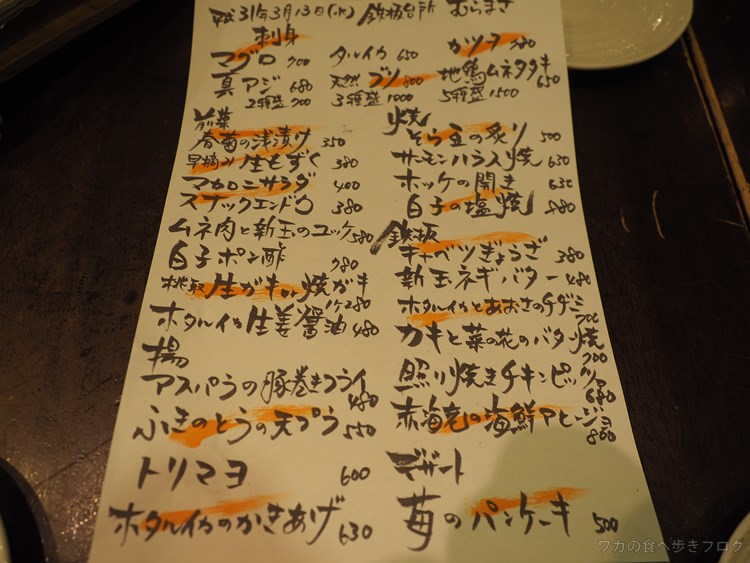 平成31年3月13日(水) 鉄板台所 むらまさ
刺身
マグロ 700 タルイカ 650 カツオ 780
真アジ 680 天然ブリ 800 地鶏ムネタタキ 650
2種盛 700 3種盛 1000 5種盛 1500
前菜
春菊の浅漬け 350
早摘み生もずく 380
マカロニサラダ 400
スナックエンドウ 380
ムネ肉と新玉のユッケ 580
白子ポン酢 780
桃取 生ガキor焼ガキ
1ケ280
ホタルイカ生姜醤油 480
揚
アスパラの豚巻きフライ 480
ふきのとうの天プラ 550
トリマヨ 600
ホタルイカのかきあげ 630
焼
そら豆の炙り 500
サーモンハラス焼 630
ホッケの開き 630
白子の塩焼 880
鉄板
キャベツぎょうざ 380
新玉ネギバター 480
ホタルイカとあおさのチヂミ 700
カキと菜の花のバター焼 700
照り焼きチキンピッツァ 680
赤海老の海鮮アヒージョ 800
デザート
苺のパンケーキ 500
ワカの食べ歩きブログ